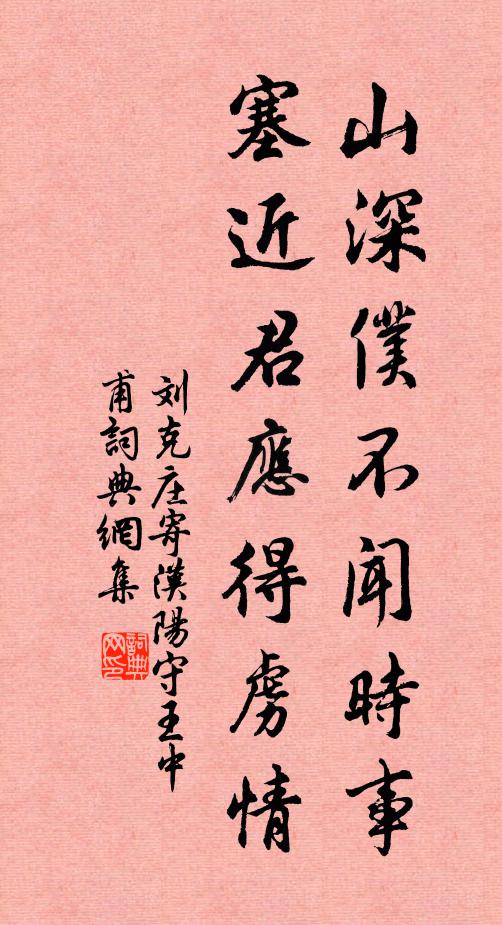 山深僕不闻時事
塞近君應得虜情
刘克庄寄漢陽守王中
甫詞典網集
詞典网印